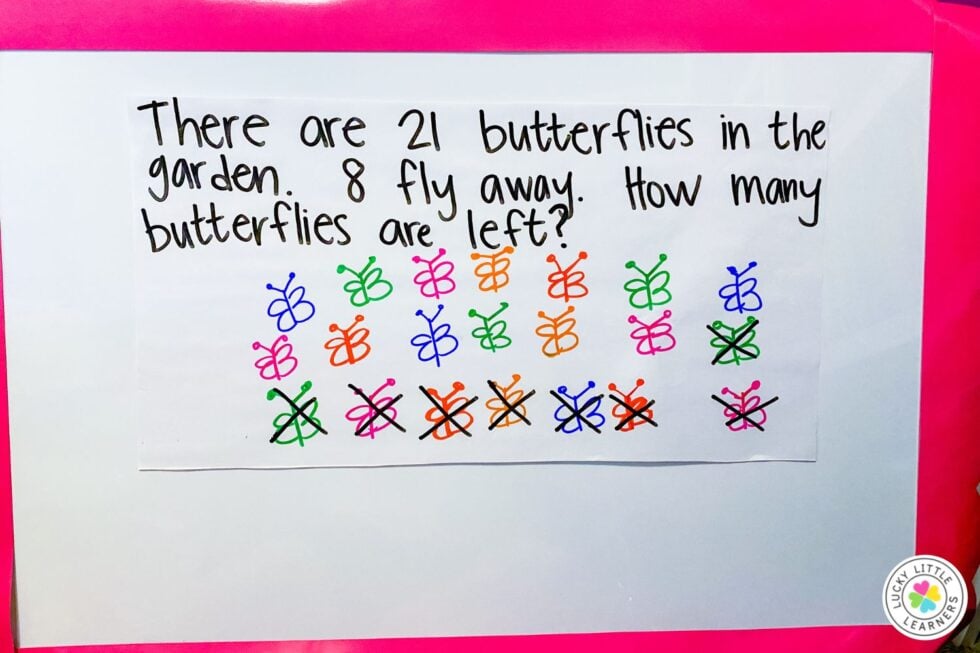 There are 21 butterflies in the
garden. 8 fly away. How many
butterflies are left?
LUCKY LITTLE
LEARNERS